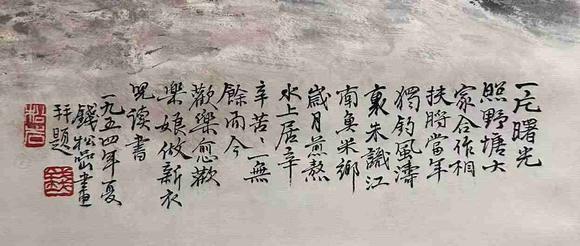 一片曙光
照野塘大
家合作相
扶將當年
獨釣風濤
裏未識江
南魚米鄉
歲月煎熬
水上居辛
辛苦〻一無
餘而今
歡樂愈歡
樂娘做新衣
兒读書
一九五四年夏
錢松喦畫
并題
松喦
錢